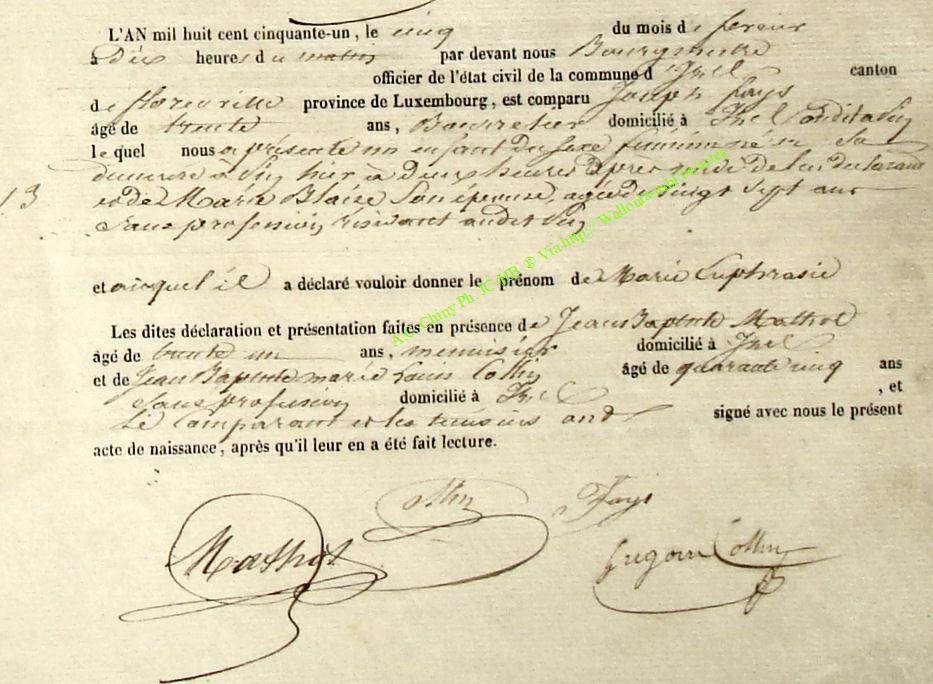 L'AN mil huit cent cinquante-un, le cinq du mois de fevrier
à Dix heures du matin par devant nous Bourgmestre
officier de l'état civil de la commune d'Izel canton
de florenville province de Luxembourg, est comparu Joseph fays
âgé de trente ans, Bourrelier domicilié à Izel
le quel nous a présenté un enfant du sexe féminin né en sa
demeure à hier à Deux heures après midi de lui déclarant
et de Marie Blaise Son épouse, agée de vingt Sept ans
Sans profession résidant audit
13
et auquel il a déclaré vouloir donner le prénom de Marie Euphrasie
Les dites déclaration et présentation faites en présence de Jean Baptiste Mathot
âgé de trente un ans, menuisier domicilié à Izel
et de Jean Baptiste marie Louis Collin âgé de quarante cinq ans
Sans profession domicilié à Izel , et
Le Comparant et les témoins ont signé avec nous le présent
acte de naissance, après qu'il leur en a été fait lecture.
Collin Fays
Mathot Collin
A.C. Chiny Ph. JC HB © Via http://